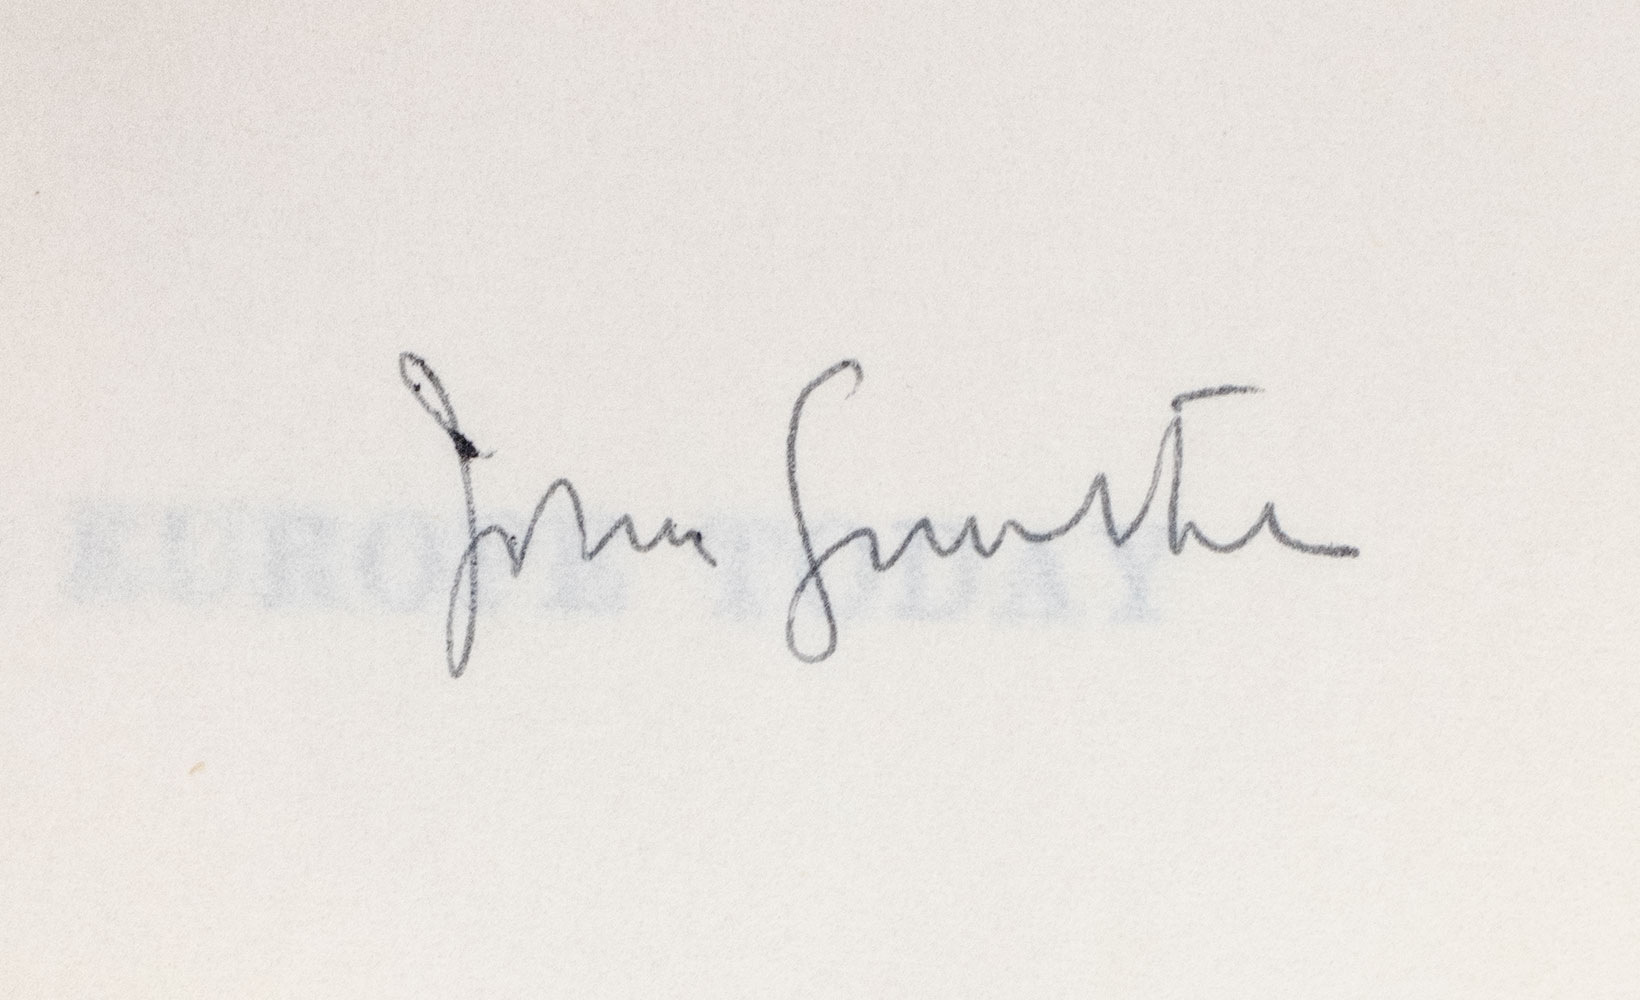 John Gunther
EUROPE TODAY